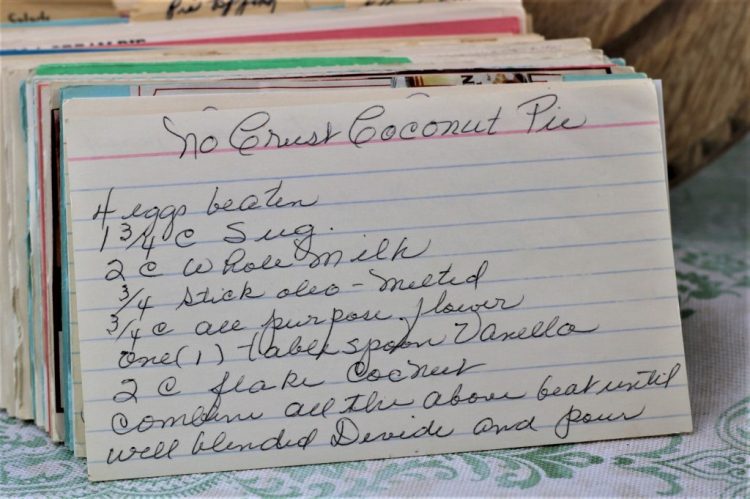 Salads
Pie Topping
No Crust Coconut Pie
4 eggs beaten
1 3/4 c Sug.
2 c Whole Milk
3/4 stick oleo - melted
3/4 c all purpose flower
one (1) tablespoon Vanella
2 C flake Cocnut
Combine all the above beat until
well blended Devide and pour